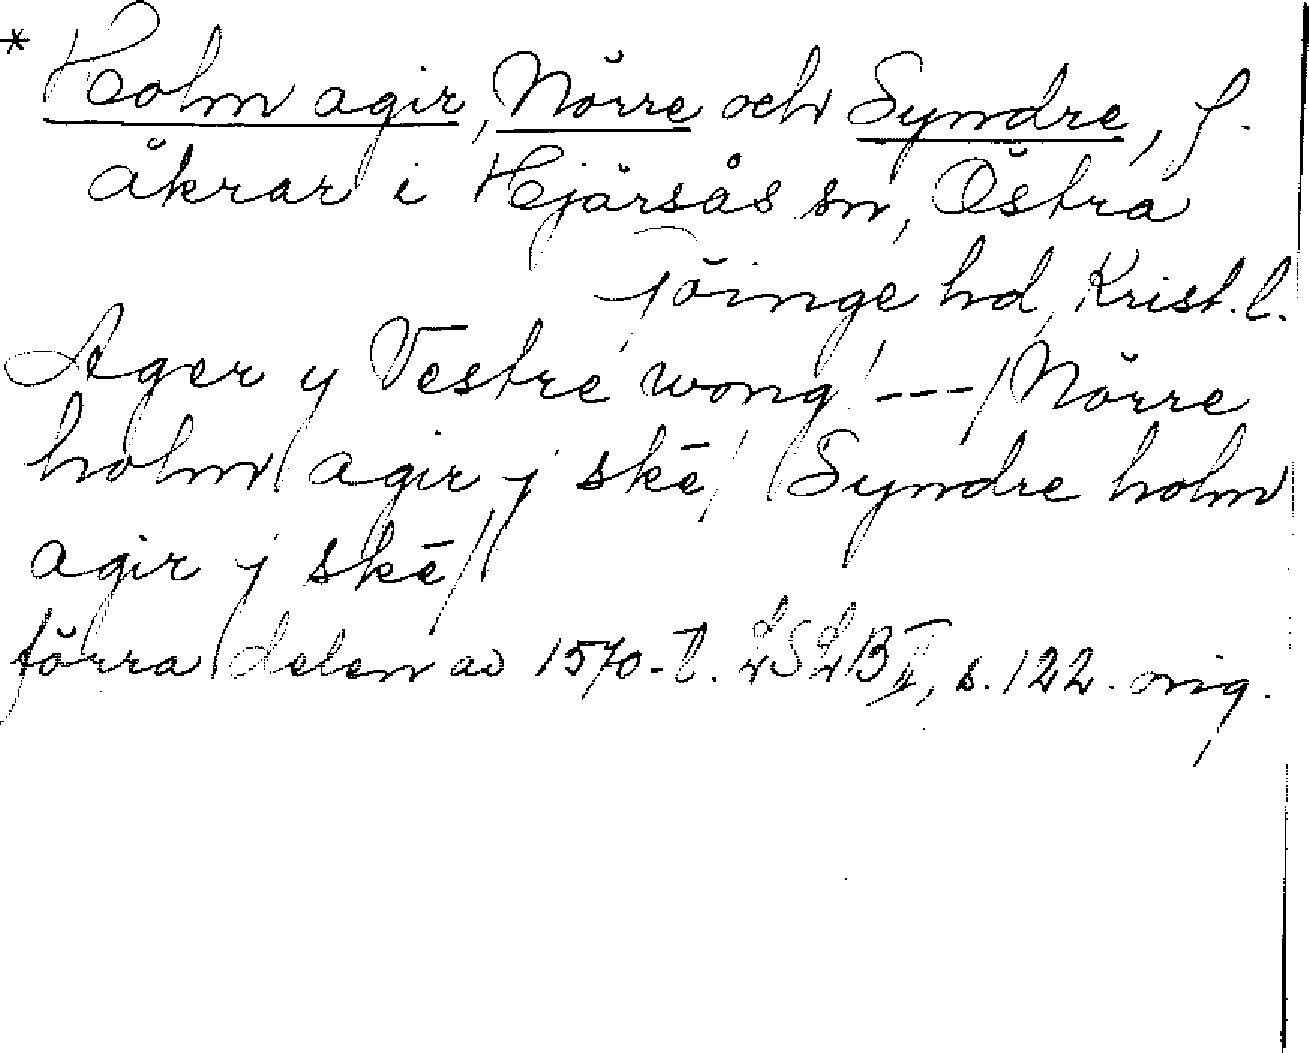 * Holm agir, Nörre och Syndre, f.
åkrar i Hjärsås sn, Östra
Göinge hd, Krist. l.
Ager y Vestre wong / --- / Nörre
holm agir j skē / Syndre holm
agir j skē /
förra delen av 1570-t. LSLB II, s. 122. orig.